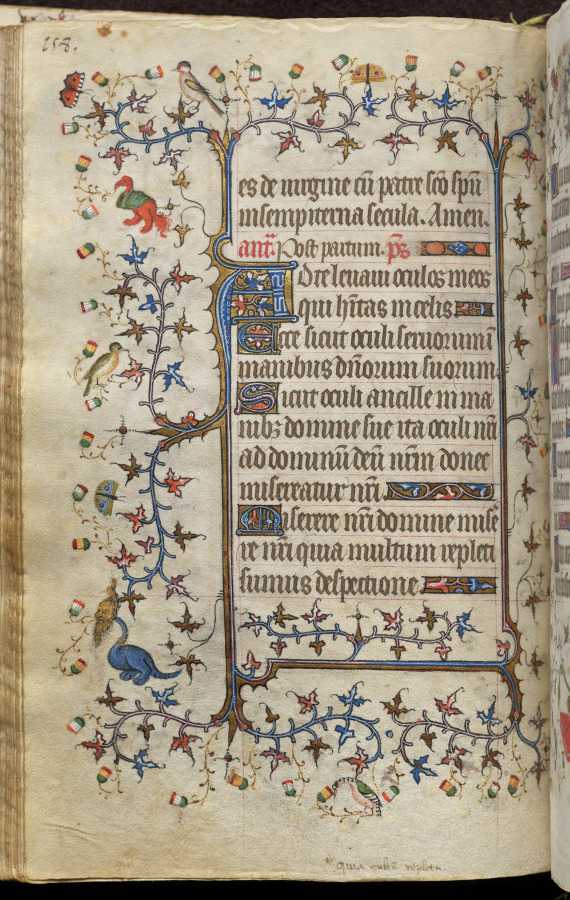 258.
es de uirgine cū patre sc̄o spū
in sempiterna secula. Amen.
antᵃ. Post partum. p̄s
Ad te leuaui oculos meos
qui hītas in celis
Ecce sicut oculi seruorum ī
manibus dn̄orum suorum.
Sicut oculi ancille in ma
nibꝫ domine sue ita oculi nr̄i
ad dominū deū nr̄m donec
misereatur nr̄i
Miserere nr̄i domine mise
re nr̄i quia multum repleti
sumus despectione
quia multū repleti